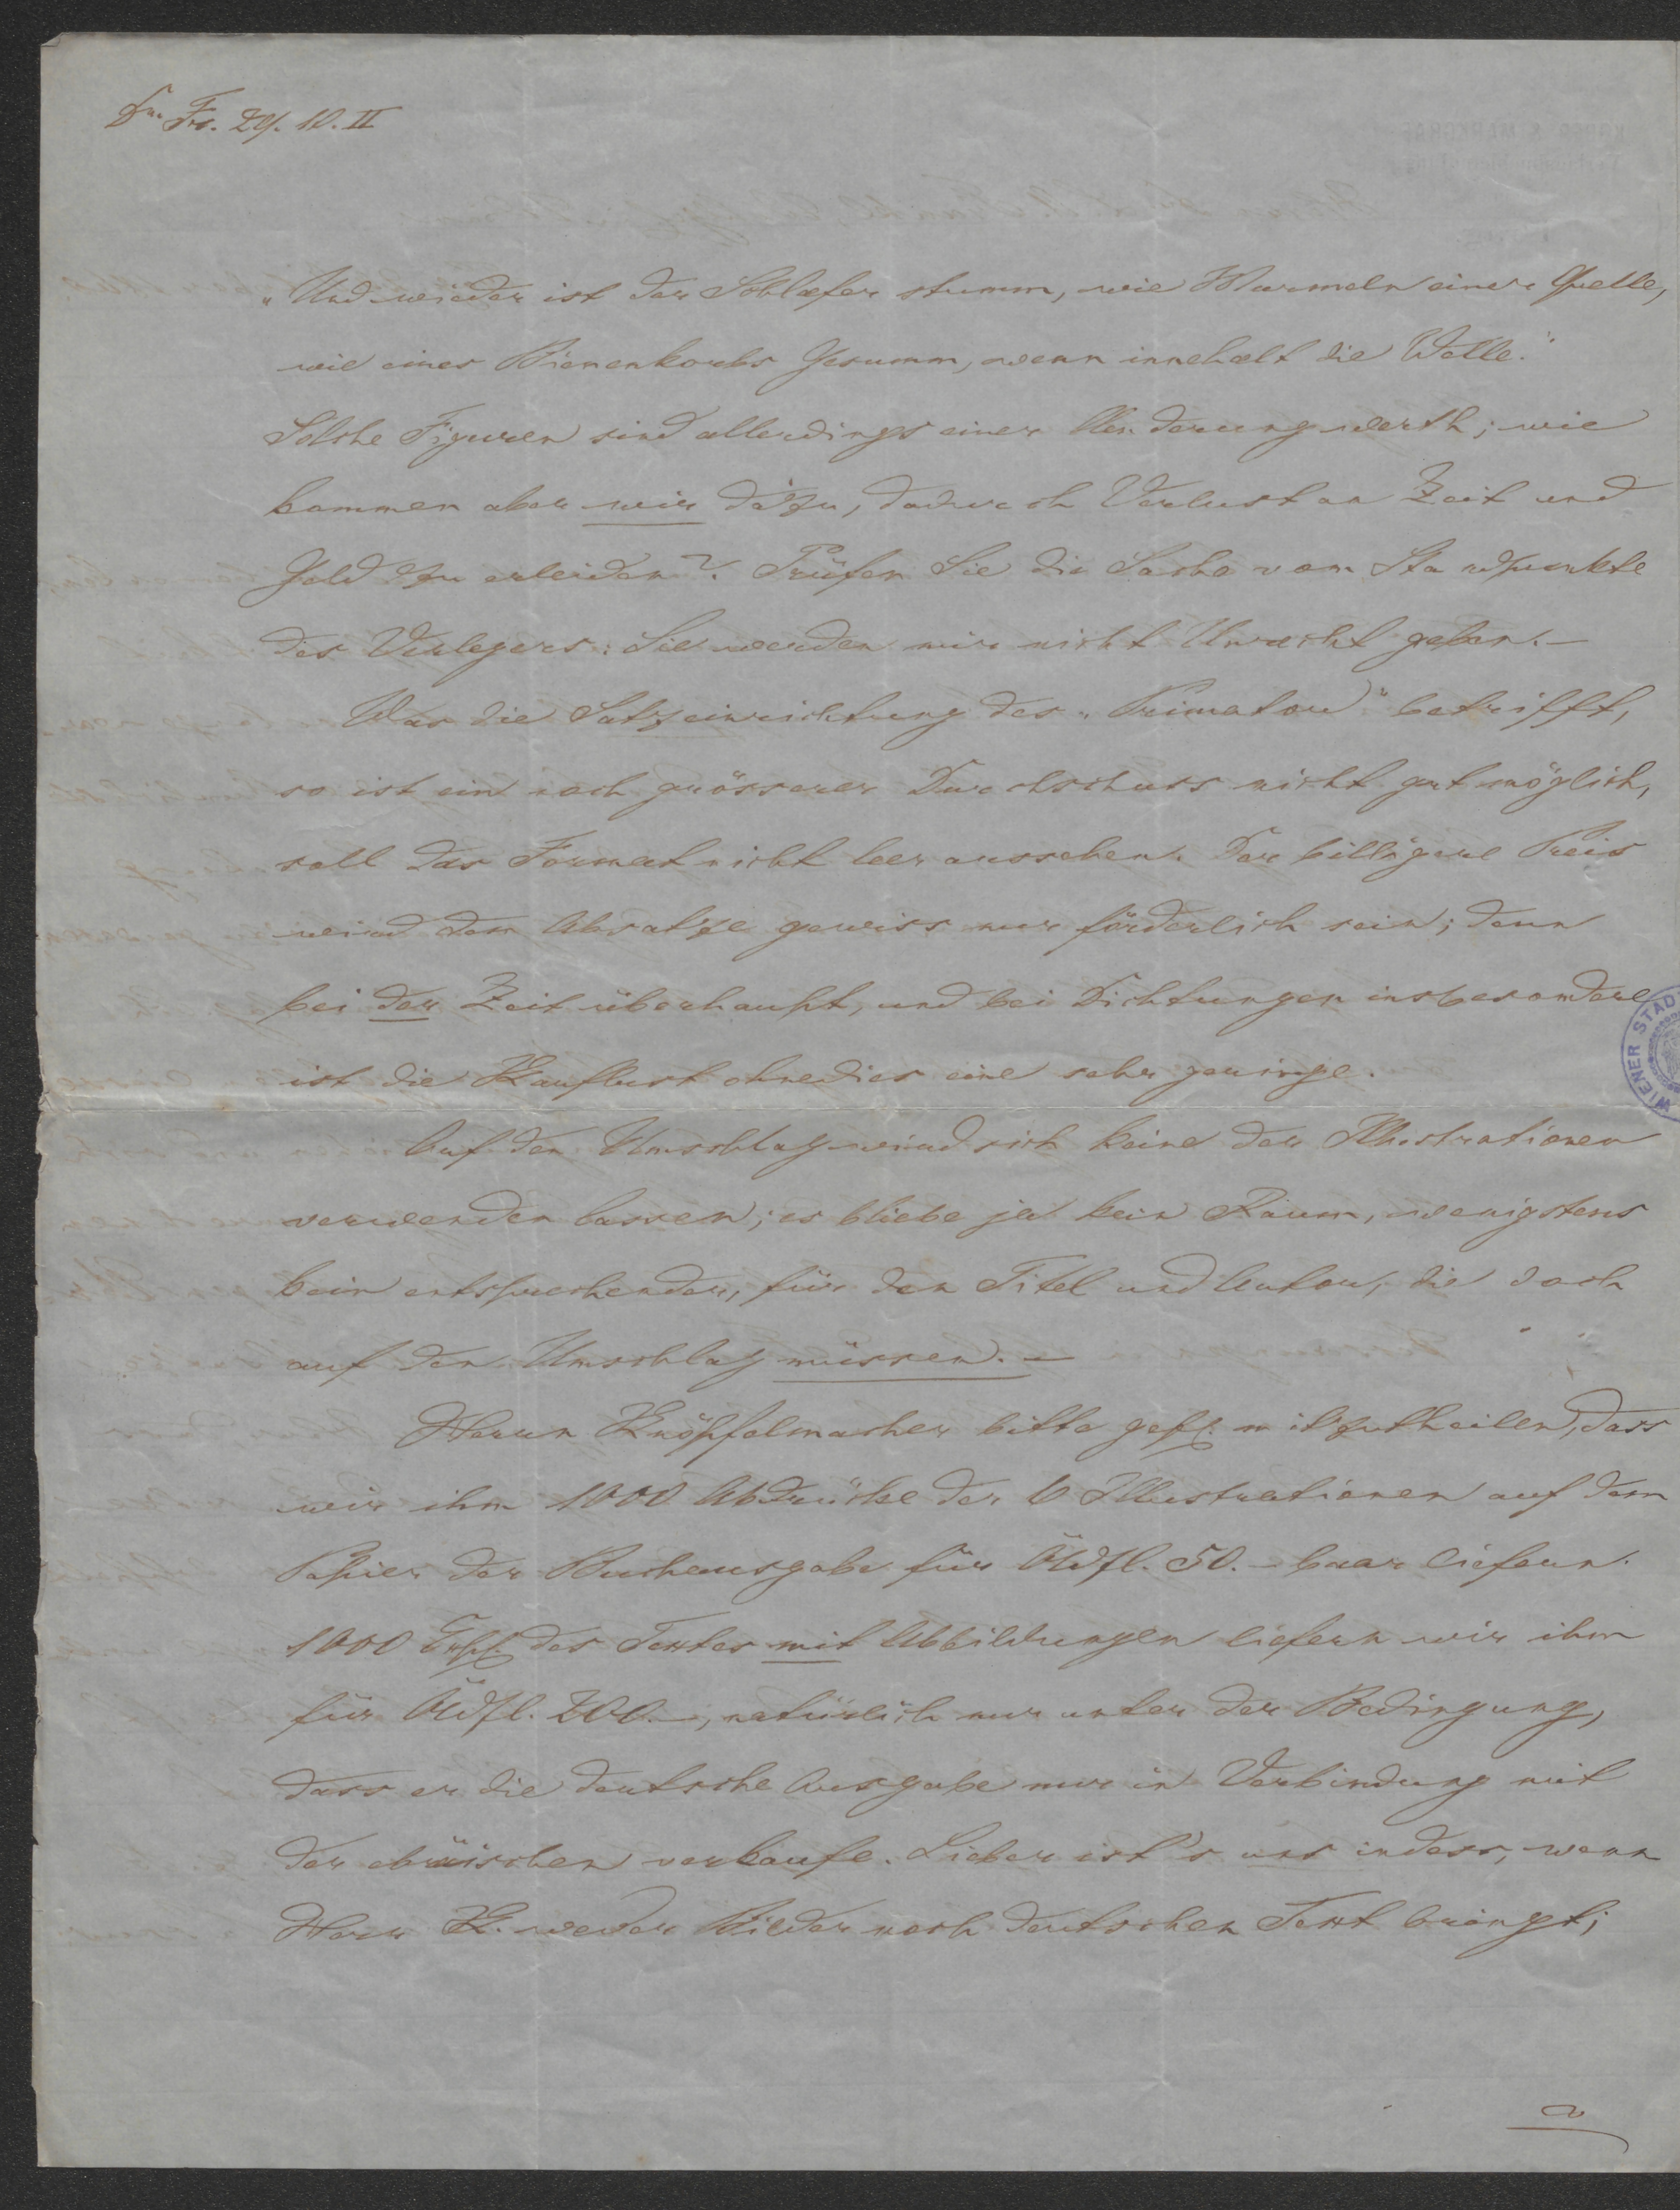 Fr. 29. 10. II
„Und wieder ist der Schlæfer stumm, wie Murmeln einer Quelle,
wie eines Bienenkorbs Gesumm, wenn innehælt die Welle."
Solche Figuren sind allerdings einer Aenderung werth; wie
kommen aber wir dazu, dadurch Verlust an Zeit und
Geld zu erleiden? Prüfen Sie die Sache vom Standpunkte
des Verlegers: Sie werden mir nicht Unrecht geben. –
Was die Satzeinrichtung des „Primator" betrifft,
so ist ein noch grösserer Durchschuss nicht gut möglich,
soll das Format nicht leer aussehen. Der billigere Preis
wird dem Absatze gewiss nur förderlich sein; denn
bei der Zeit überhaupt, und bei Dichtungen insbesondere
ist die Kauflust ohnedies eine sehr geringe.
Auf den Umschlag wird sich keine der Illustrationen
verwenden lassen; es bliebe ja kein Raum, wenigstens
kein entsprechender, für den Titel und Autor, die doch
auf den Umschlag müssen. –
Herrn Knöpfelmacher bitte gefl. mitzutheilen, dass
wir ihm 1000 Abdrücke der 6 Illustrationen auf dem
Papier der Buchausgabe für ÖWfl. 50. – baar liefern.
1000 Expl des Textes mit Abbildungen liefern wir ihm
für ÖWfl. 200. –, natürlich nur unter der Bedingung,
dass er die deutsche Ausgabe nur in Verbindung mit
der ebräischen verkaufe. Lieber ist's uns indess, wenn
Herr K. weder Bilder noch deutschen Text bringt;
WIENER STAD